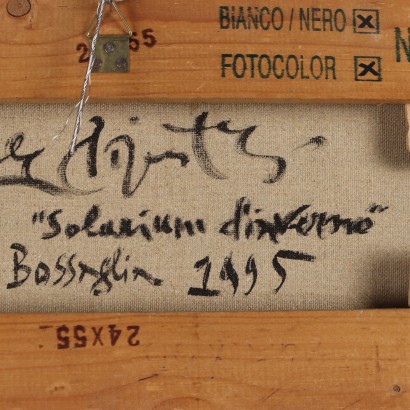 BIANCO / NERO
FOTOCOLOR
N
"Solarium d'inverno"
Bassaglia 1995
24 x 55